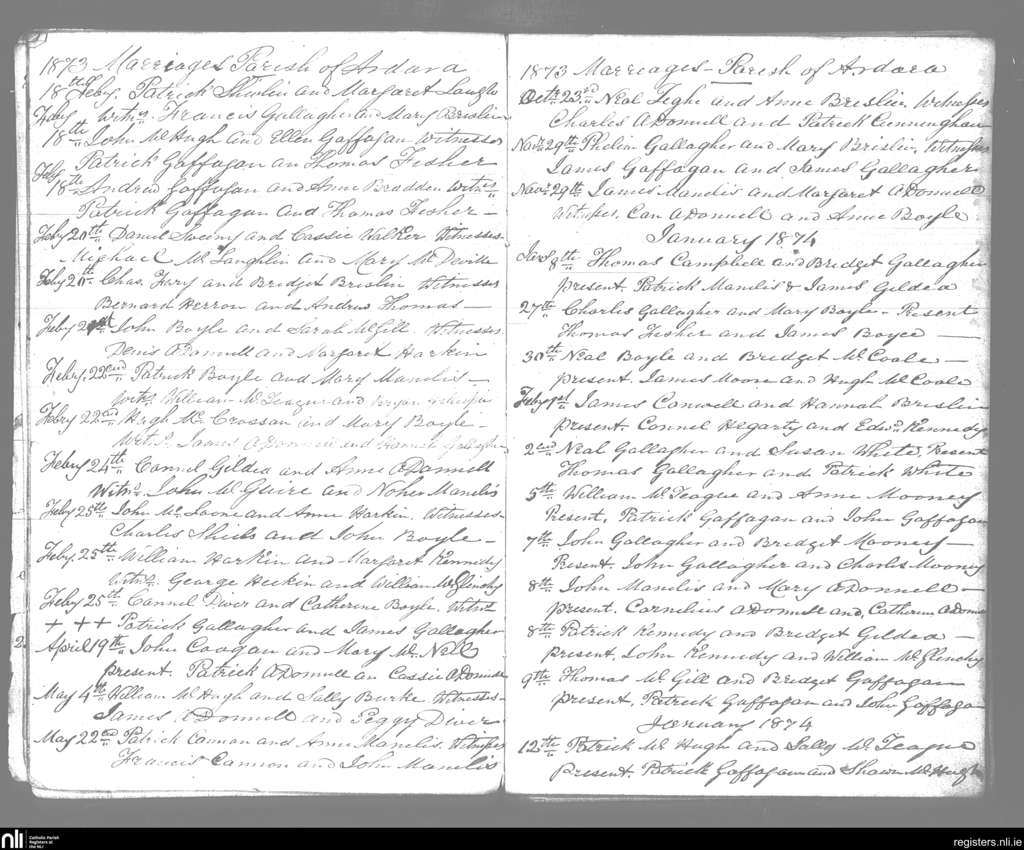 1873 Marriages Parish of Ardara
18th Feby. Patrick Shovlin and Margaret
Feby Witns. Francis Gallagher and Mary Breslin
18th John McHugh and Ellen Gaffagan Witnesses
Feby Patrick Gaffagan an Thomas Fisher
18th Andrew Gaffagan and Anne Bradden Witns
Patrick Gaffagan and Thomas Fisher —
Feby 20th Daniel Sweeny and Cassie Walker Witnesses
Michael McLaughlin and Mary McDevitte
Feby 20th Chas. Hary and Bridget Brislin Witnesses
Bernard Herron and Andrew Thomas —
Feby 21st John Boyle and Sarah McGill Witnesses
Denis ODonnell and Margaret Harkin
Febry. 22nd Patrick Boyle and Mary Manelis —
Witns. William McTeague and Bryan
Febry 22nd Hugh McCrossan and Mary Boyle —
Wets. James ODonnell and Hannah Gallagher
Febry 24th Connel Gildea and Anne ODonnell
Witns. John McGuire and Noher Manelis
Feby 25th John McLoone and Anne Harkin. Witnesses
Charles Shiels and John Boyle —
Feby. 25th William Harkin and Margaret Kennedy
Witns. George Heekin and William McGlinchy
Feby 25th Connel Diver and Catherine Boyle. Witns
+ + + Patrick Gallagher and James Gallagher
April 19th John Coogan and Mary McNeles
present. Patrick ODonnell an Cassie ODonnell
May 4th William McHugh and Sally Burke Witnesses
James ODonnell and Peggy Diver
May 22nd Patrick Cannon and Anne Manelis. Witnesses
Francis Cannon and John Manelis
1873 Marriages — Parish of Ardara
Octr. 23rd Neal Teghe and Anne Breslin Witnesses
Charles ODonnell and Patrick Cunninghan
Novr 29th Phelim Gallagher and Mary Brislin, Witnesses
James Gaffagan and James Gallagher
Novr 29th James Manelis and Margaret ODonnell
Witnesses, Con ODonnell and Anne Boyle
January 1874
Jany 8th Thomas Campbell and Bridget Gallagher
present. Patrick Manelis & James Gildea
27th Charles Gallagher and Mary Boyle — Present
Thomas Fisher and James Boyce —
30th Neal Boyle and Bridget McCoole —
present. James Moore and Hugh McCoole
Feby 1st James Conwell and Hannah Brislin
present Connel Hegarty and Edwd. Kennedy
2nd Neal Gallagher and Susan White. Present
Thomas Gallagher and Patrick White
5th William McTeague and Anne Mooney
Present, Patrick Gaffagan and John Gaffagan
7th John Gallagher and Bridget Mooney —
Present. John Gallagher and Charles Mooney
8th John Manelis and Mary ODonnell —
present. Cornelius ODonnell and, Catherin ODonnell
8th Patrick Kennedy and Bridget Gildea —
present, John Kennedy and William McGlinchy
9th Thomas McGill and Bridget Gaffagan
present, Patrick Gaffagan and John Gaffagan
January 1874
12th Patrick McHugh and Sally McTeague
Present. Patrick Gaffagan and Shawn McHugh
nli
Catholic Parish
Registers at
the NLI
registers.nli.ie